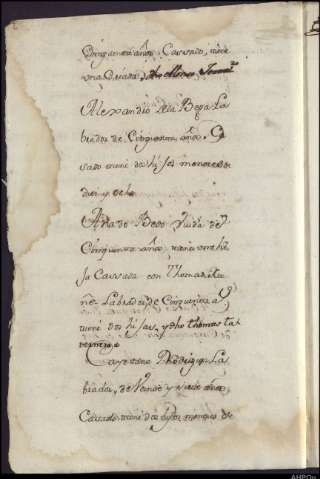 Cinquenta años Cassado, tiene
una Criada
Alexandro de la Bega La
brador de Cinquenta años, C
sado tiene dos hijos menores de
diez y ocho
Ana de Bega Viuda de
Cinquenta años, tiene una hi
Ja Cassada con Thomas
Labrador de Cinquenta a
tiene dos hijas, y dho thomas ta
Cayetano Rodriguez La
brador, de Veinte y nueve años
Cassado tiene dos hijos menores de
AHPOu